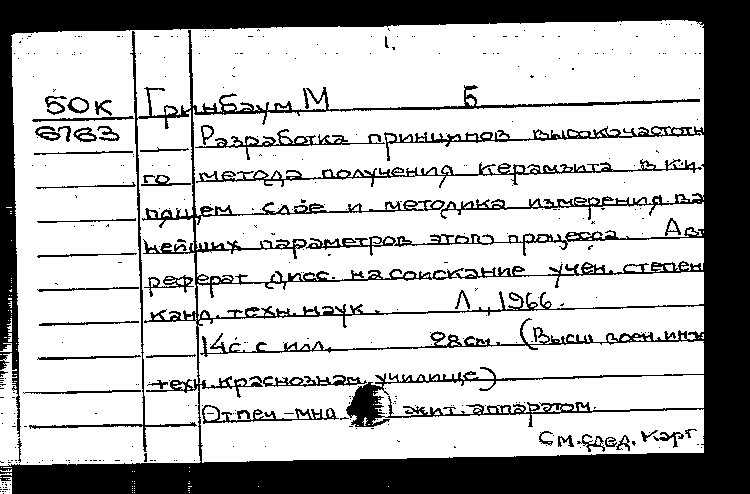 1.
50К Гринбаум, М Б
6763 Разработка принципов высокочастотн
го метода получения керамзита в ки-
пящем слое и методика измерения ва
нейших параметров этого процесса. Авт
реферат дисс. на соискание учен. степен
канд. техн. наук. Л., 1966.
14с. с илл. 28см. (Высш воен. инж
техн. краснознам. училище)
Отпеч мно жит. аппаратом.
См. след. карт